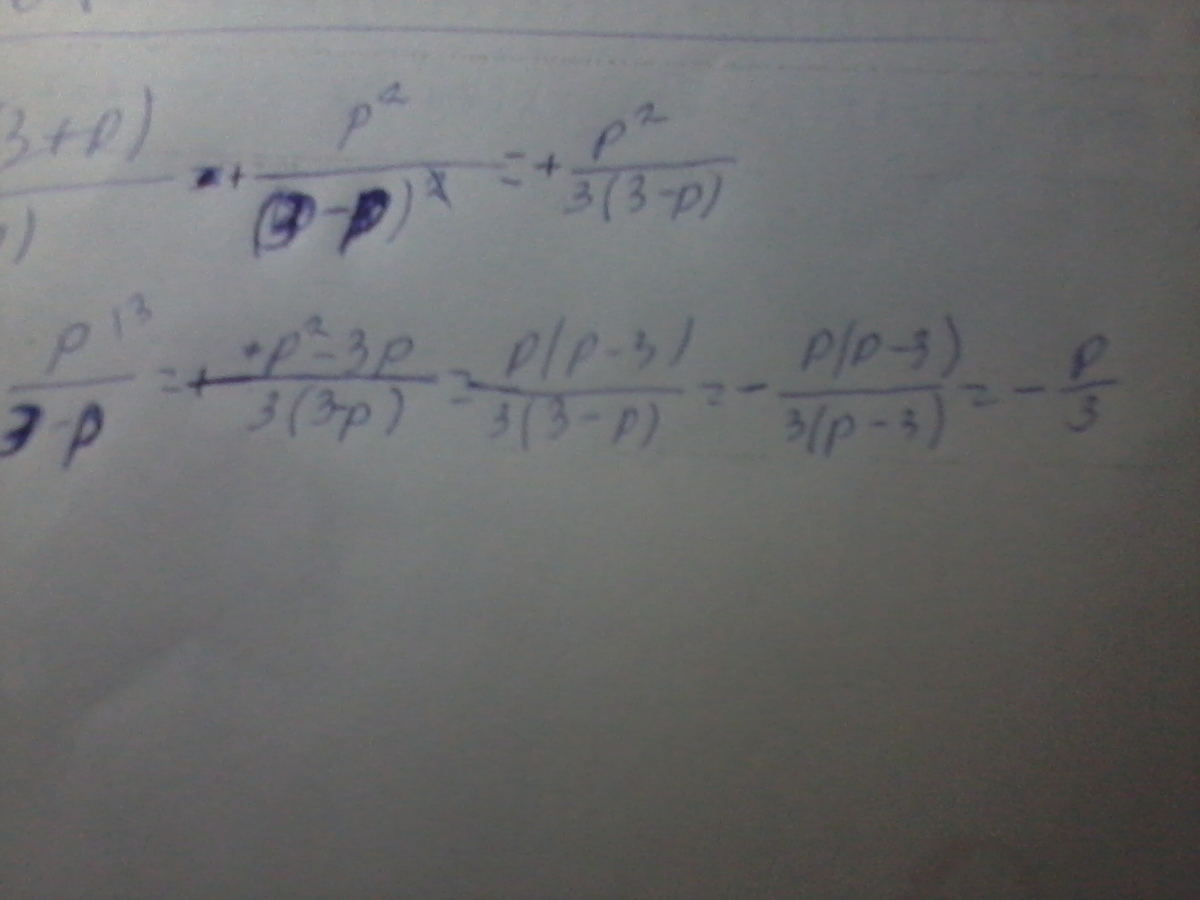 3+p) / ) + p² / (3-p)² = + p² / 3(3-p)
p |³ / 3-p = + +p²-3p / 3(3-p) = p(p-3) / 3(3-p) = - p(p-3) / 3(p-3) = - p / 3